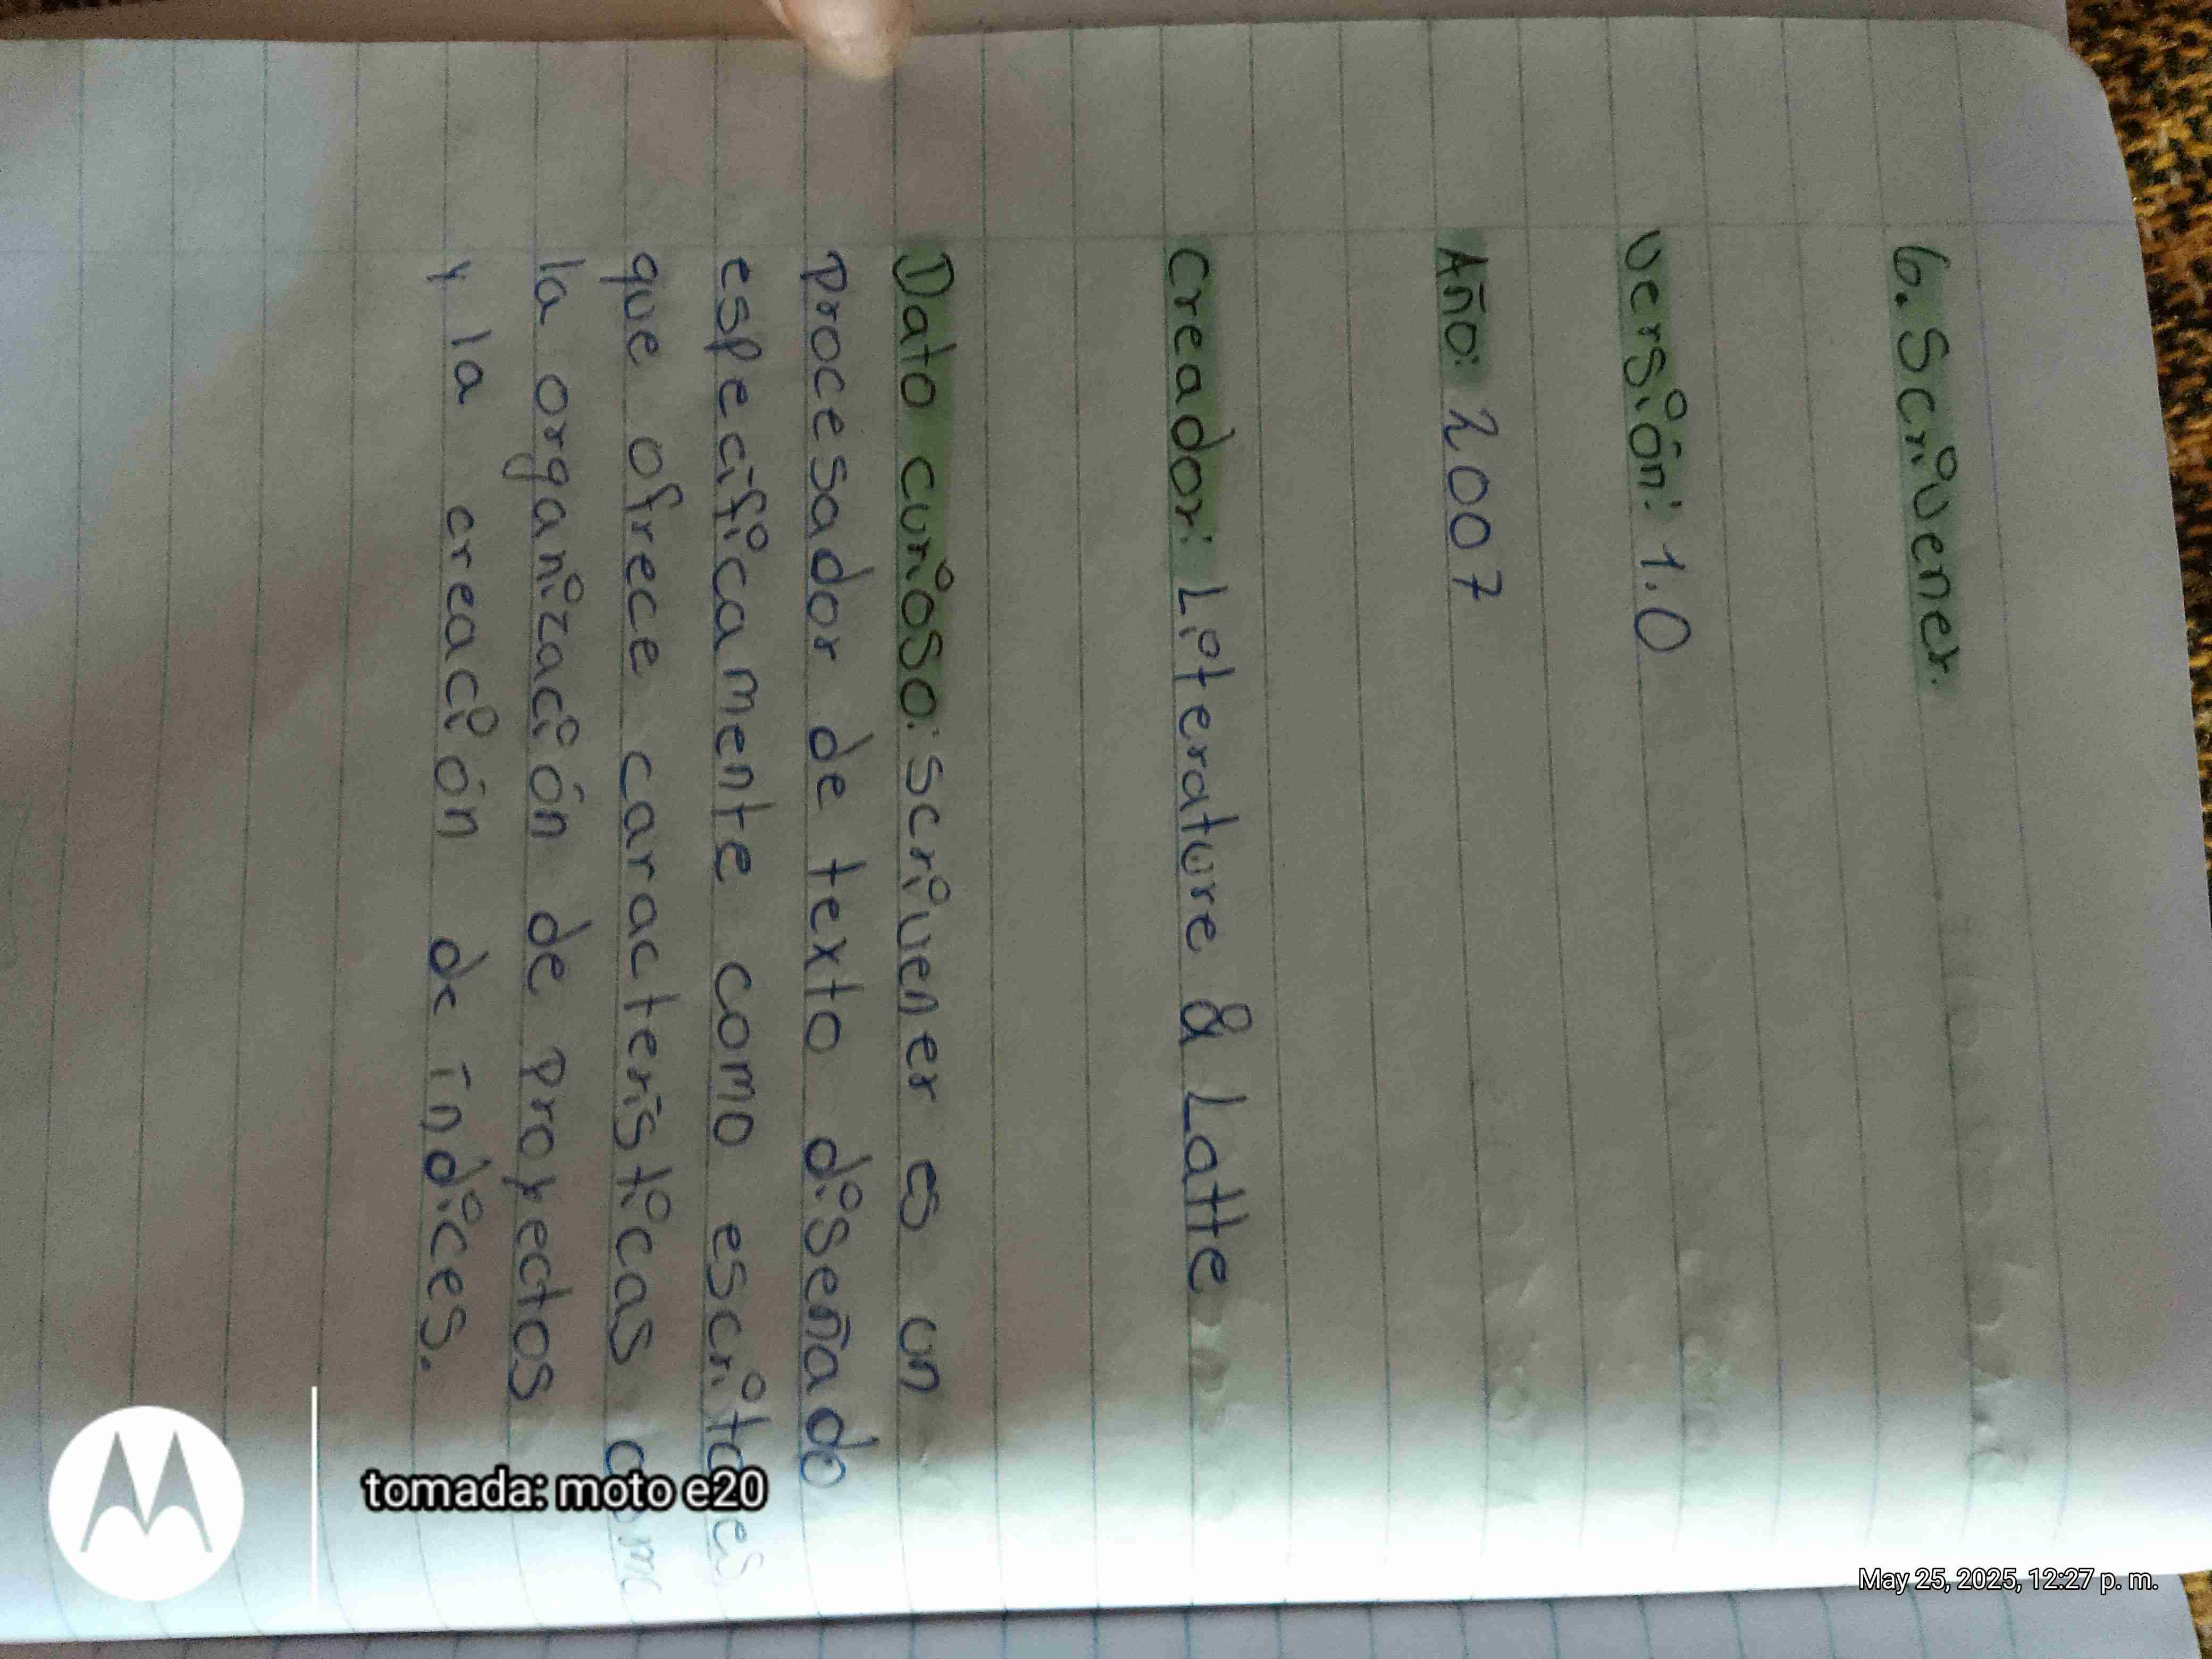 6. Scrivener.
Versión: 1.0
Año: 2007
Creador: Literature & Latte
Dato curioso: Scrivener es un
procesador de texto diseñado
específicamente como escritores
que ofrece características com
la organización de proyectos
y la creación de índices.
tomada: moto e20
May 25, 2025, 12:27 p. m.